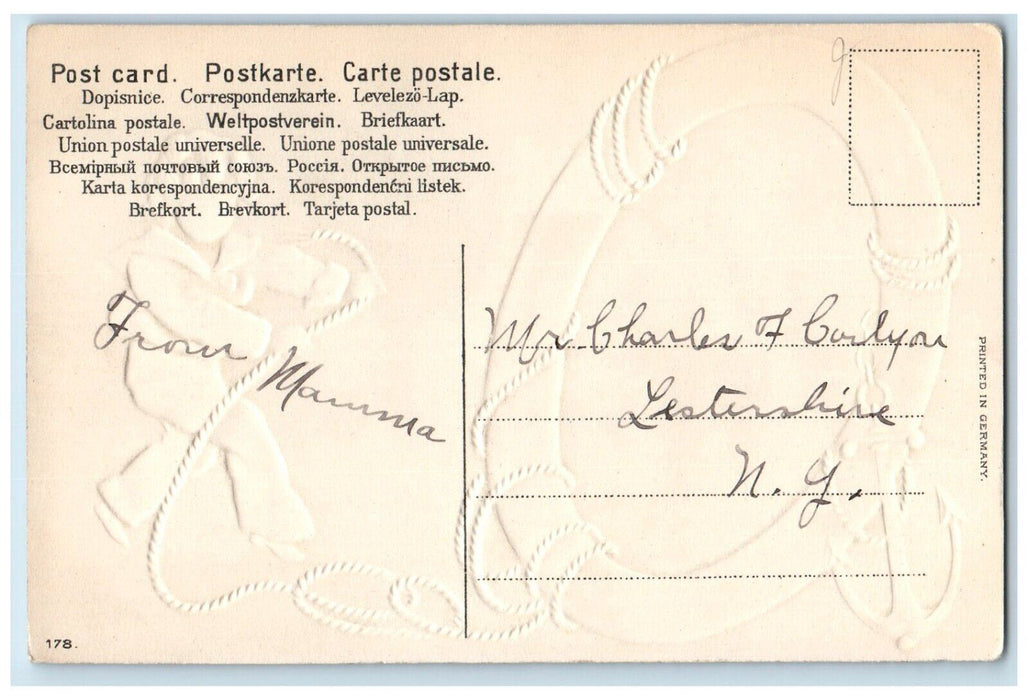 Post card. Postkarte. Carte postale.
Dopisnice. Correspondenzkarte. Levelező-Lap.
Cartolina postale. Weltpostverein. Briefkaart.
Union postale universelle. Unione postale universale.
Всемірный почтовый союзъ. Россія. Открытое письмо.
Karta korespondencyjna. Korespondenčni listek.
Brefkort. Brevkort. Tarjeta postal.
From
Mamma
Mr. Charles F Corlyon
Lestershire
N. Y.
PRINTED IN GERMANY.
178.